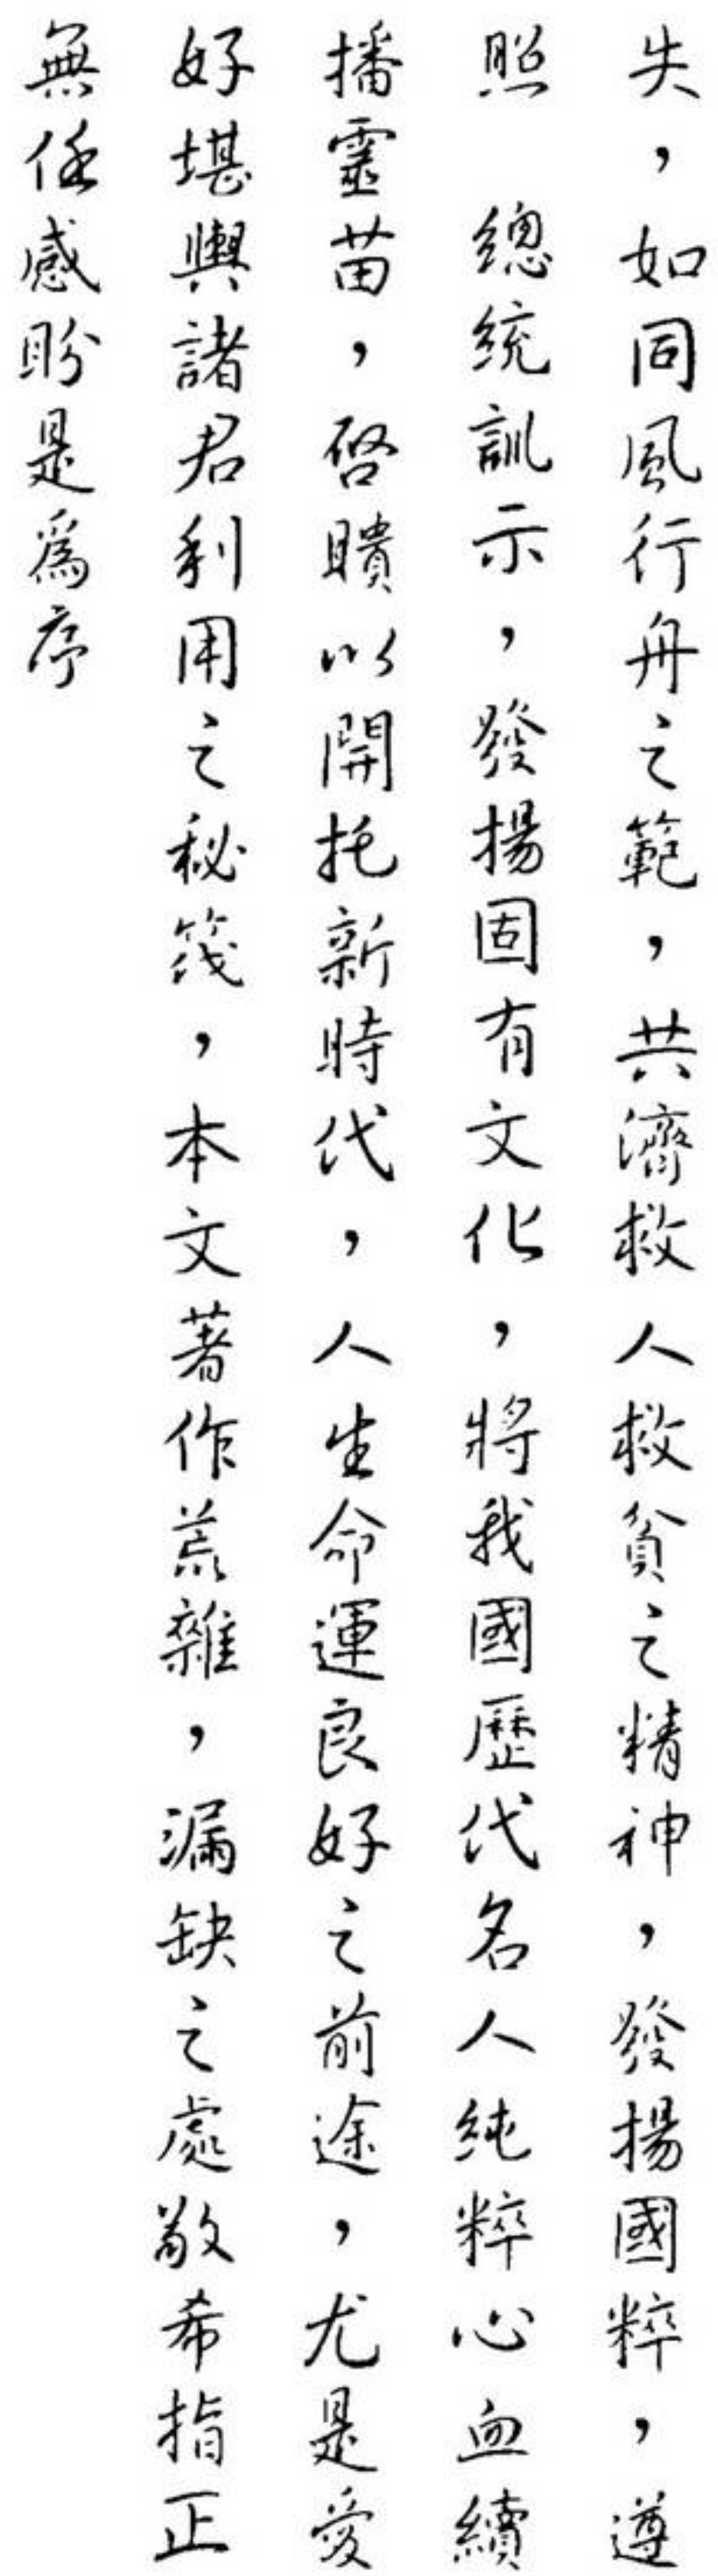 失，如同風行舟之範，共濟救人救貧之精神，發揚國粹，遵
照　總統訓示，發揚固有文化，將我國歷代名人純粹心血續
播靈苗，啓瞶以開托新時代，人生命運良好之前途，尤是愛
好堪輿諸君利用之秘筏，本文著作荒雜，漏缺之處敬希指正
無任感盼是為序